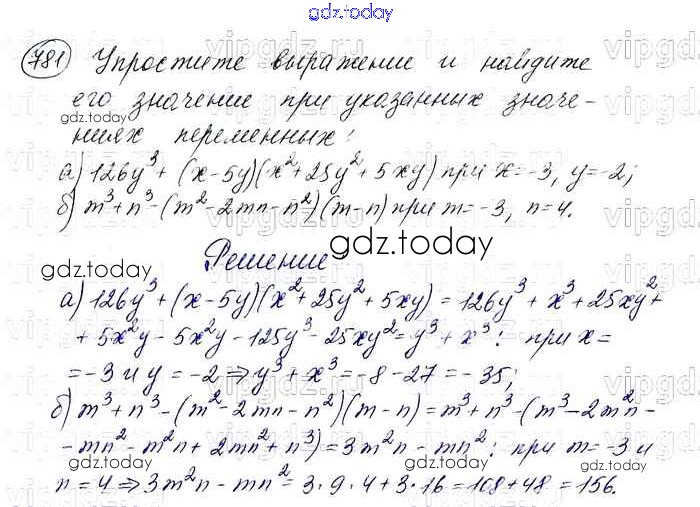 gdz.today
781 Упростите выражение и найдите
его значение при указанных значе-
ниях переменных:
gdz.today
а) 126y³ + (x-5y)(x²+25y²+5xy) при x=-3, y=-2;
б) m³+n³-(m²-2mn-n²)(m-n) при m=-3, n=4.
gdz.today
Решение
gdz.today
gdz.today
а) 126y³+(x-5y)(x²+25y²+5xy) = 126y³+x³+25xy²+
+5x²y-5x²y-125y³-25xy²=y³+x³; при x=
=-3 и y=-2⇒y³+x³=-8-27=-35;
gdz.today
б) m³+n³-(m²-2mn-n²)(m-n)=m³+n³-(m³-2m²n-
-mn²-m²n+2mn²+n³)=3m²n-mn²; при m=-3 и
gdz.today
gdz.today
n=4⇒3m²n-mn²=3·9·4+3·16=108+48=156.